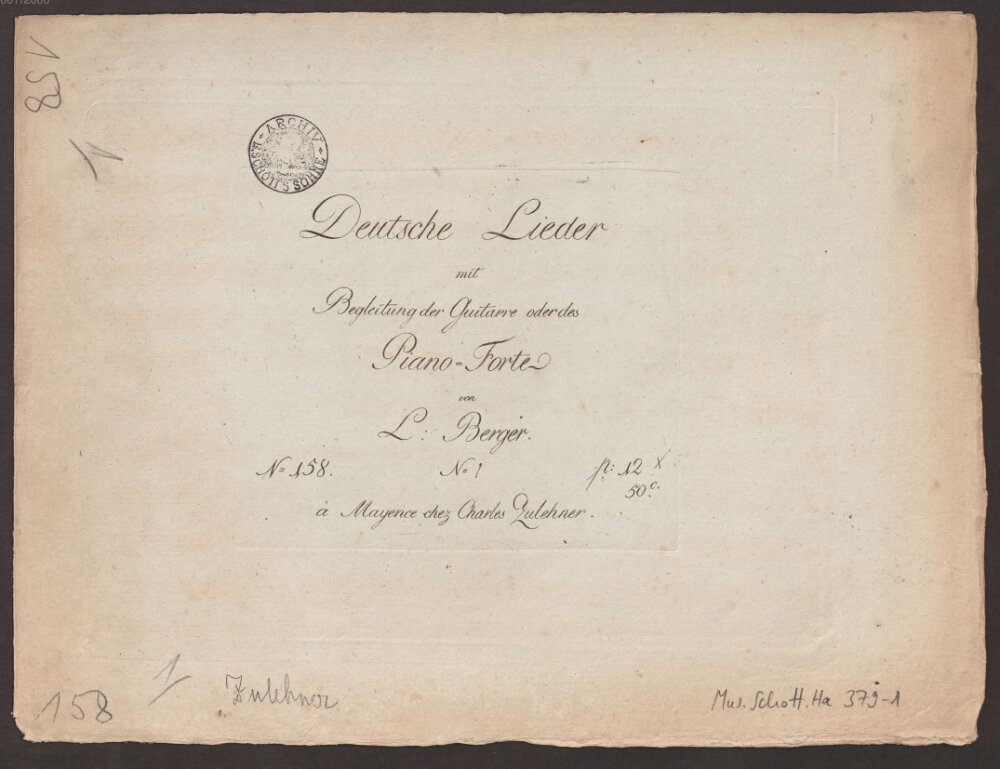 158
1
ARCHIV
B. SCHOTT'S SÖHNE
Deutsche Lieder
mit
Begleitung der Guitarre oder des
Piano=Forte
von
L: Berger.
N= 158. N= 1 pr: 12 X
50 c.
à Mayence chez Charles Zulehner.
1
158 Zulehner Mus. Schott. Ha 379-1